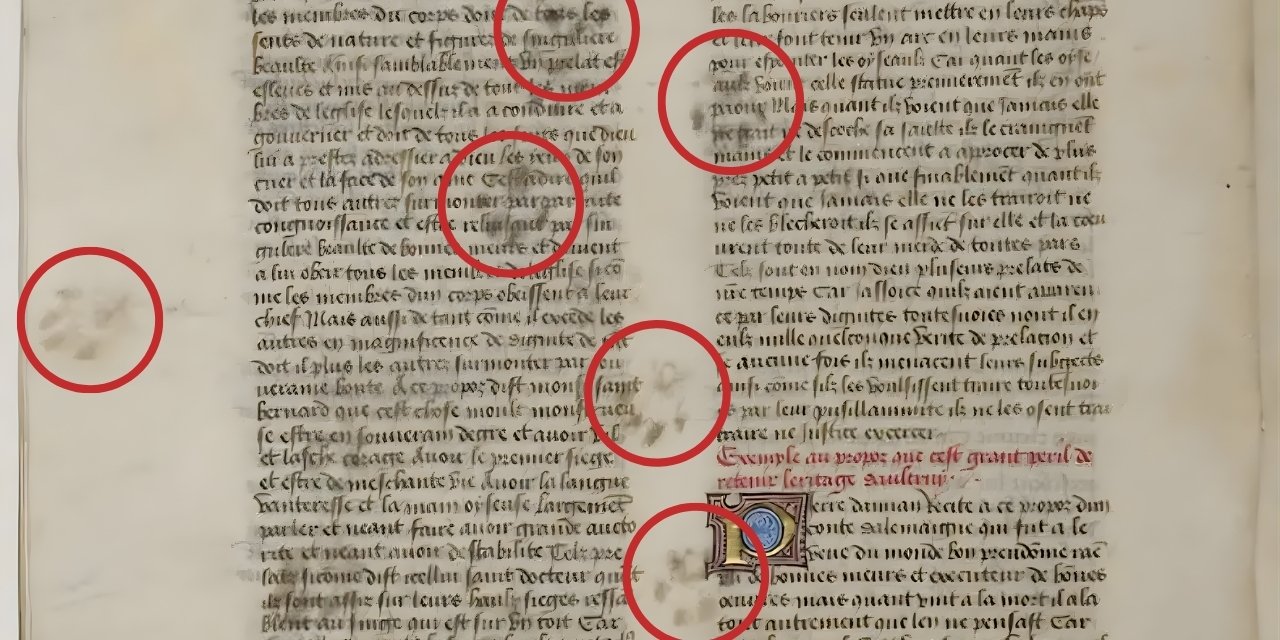 les membres du corps doit de tous les
sens de nature et figure de singuliere
beaulte Ainsi samblablement un prelat est
esleues et mis au dessus de tous les mem
bres de leglise lesquelz il a a conduire et a
gouverner et doit de tous les que dieu
lui a prestez adressier a dieu les yeux de son
cuer et la face de son ame Cest adire quil
doit tous autres surmonter par
congnoissance et estre reluisant par sin
guliere beaulte de bonnes meurs et doivent
a lui obeir tous les membres de leglise si cō
me les membres dun corps obeissent a leur
chief Mais aussi de tant cōme il excede les
autres en magnificence de dignite de
doit il plus les autres surmonter par sou
veraine bonte A ce propoz dist mons saint
bernard que cest chose moult monstrueu
se estre en souverain degre et avoir vil
et lasche corage Avoir le premier siege
et estre de meschante vie Avoir la langue
vanteresse et la main oiseuse Largement
parler et neant faire avoir grande aucto
rite et neant avoir destabilite Telz pre
latz sicōme dist icellui saint docteur quāt
ilz sont assiz sur leurs haulz sieges ressā
blent au singe qui est sur un toit Car
les labouriers seulent mettre en leurs chāps
et leur font tenir un arc en leurs mains
pour espoenter les oyseaulx Car quant les oyse
aulx voient celle statue premierement ilz en ont
paour Mais quant ilz voient que Jamais elle
ne trait ne descoche sa saiette ilz le craingnēt
mains et le commencent a approcer de plus
prez petit a petit si que finablement quant ilz
voient que Jamais elle ne les trairoit ne
ne les blecheroit ilz se assiet sur elle et la coeu
urent toute de leur merde de toutes pars
Telz sont en nom dieu plusieurs prelats de
nr̄e temps Car Jassoice quilz aient apparen
ce par leurs dignites toutesvoies nont il en
eulz nulle quelconque verite de prelacion et
se aucune fois ilz menacent leurs subgects
ainsi cōme silz les voulsissent traire toutesvoi
es par leur pusillanimite ilz ne les osent trai
traire ne Justice excercer
Exemple au propoz que cest grant peril de
retenir leritage daultruy
Pierre damian recite a ce propoz dun
conte dalemaigne qui fut a le
veue du monde bon prendōme
de bonnes meurs et executeur de bōnes
oeuvres mais quant vint a la mort il ala
tout autrement que len ne pensast Car